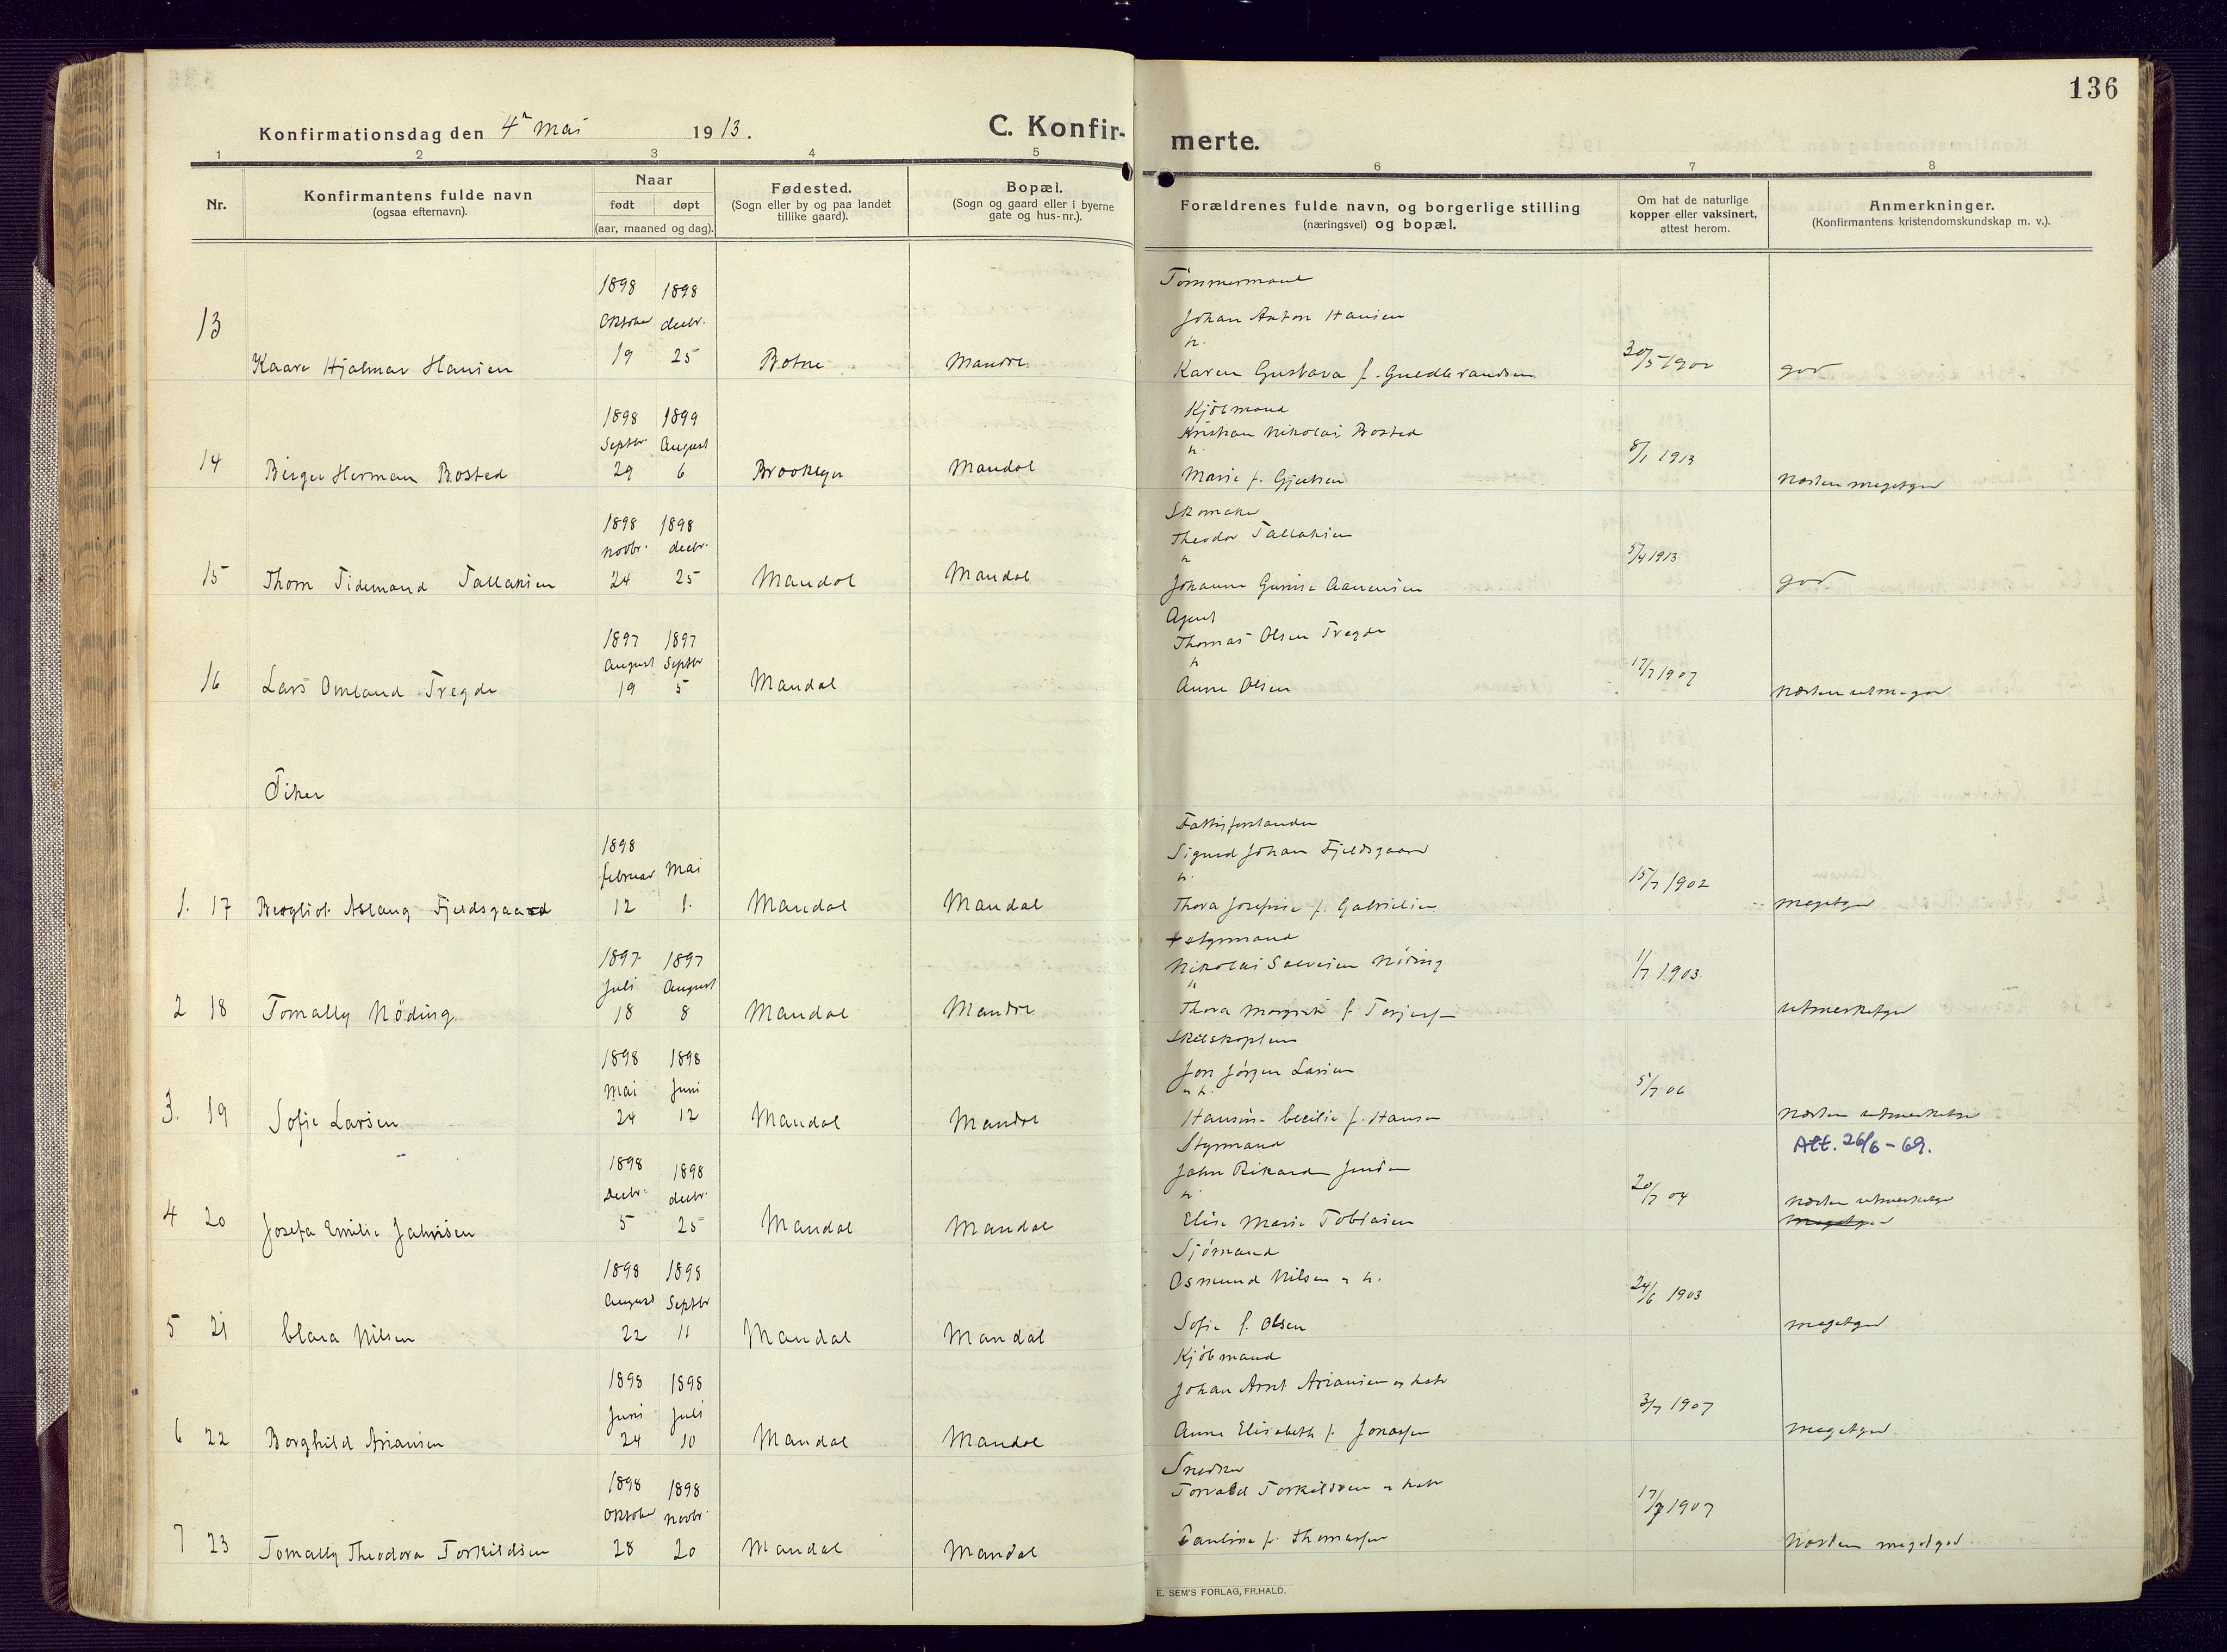 136
Konfirmationsdag den 4de mai 1913.
C. Konfir-
merte.
1 2 3 4 5 6 7 8
Nr.
Konfirmantens fulde navn
(ogsaa efternavn).
Naar
født døpt
(aar, maaned og dag).
Fødested.
(Sogn eller by og paa landet
tillike gaard).
Bopæl.
(Sogn og gaard eller i byerne
gate og hus-nr.).
Forældrenes fulde navn, og borgerlige stilling
(næringsvei) og bopæl.
Om hat de naturlige
kopper eller vaksinert,
attest herom.
Anmerkninger.
(Konfirmantens kristendomskundskap m. v.).
1898 1898
Tømmermand
Oktober decbr.
Johan Anton Hansen
13
19 25
h.
Kaare Hjalmar Hansen Botne Mandal Karen Gustava f. Guldbrandsen 30/5 1900 god
1898 1899
Kjøbmand
Septbr August
Kristian Nikolai Bosted
h.
14 Birger Herman Bosted 29 6 Brooklyn Mandal Marie f. Gjertsen 8/1 1913 næsten megetgod
1898 1898
Skomaker
novbr. decbr.
Theodor Tallaksen
h
15 Thom Tidemand Tallaksen 24 25 Mandal Mandal Johanne Gurine Aanensen 5/4 1913 god
Agent
1897 1897
Thomas Olsen Tregde
August Septbr
h
16 Lars Omland Tregde 19 5 Mandal Anne Olsen 17/7 1907 næsten utm-god
Piker
Fattigforstander
1898
Sigurd Johan Fjeldsgaard
februar Mai
h.
1. 17 Bergliot Aslaug Fjeldsgaard 12 1. Mandal Mandal Thora Josefine f. Gabrielsen 15/7 1902 megetgod
styrmand
1897 1897
Nikolai Salvesen Nöding
Juli August
h
2 18 Tomally Nöding 18 8 Mandal Mandal Thora Margrete f. Terjesen 1/7 1903 utmerketgod
Skibskaptein
1898 1898
Jon Jørgen Larsen
mai Juni
o h.
3. 19 Sofie Larsen 24 12 Mandal Mandal Hansine Cecilie f. Hansen 5/7 06 næsten utmerketgod
Att. 26/6-69.
Styrmand
1898 1898
John Rikard
Decbr. decbr.
h.
næsten utmerketgod
4 20 Josefa Emilie Jahnsen 5 25 Mandal Mandal Elise Marie Tobiasen 20/7 04 megetgod
Sjömand
1898 1898
Osmund Nilsen o h.
August Septbr
5 21 Clara Nilsen 22 11 Mandal Mandal Sofie f. Olsen 24/6 1903 megetgod
Kjøbmand
1898 1898
Johan Arnt Ariansen og hstr
Juni Juli
6 22 Borghild Ariansen 24 10 Mandal Mandal Anne Elisabeth f. Jonassen 3/7 1907 megetgod
Snedker
1898 1898
Torvald Torkildsen o hstr
Oktober novbr.
7 23 Tomally Theodora Torkildsen 28 20 Mandal Mandal Pauline f. Thomassen 17/7 1907 næsten megetgod
E. SEM'S FORLAG, FR.HALD.